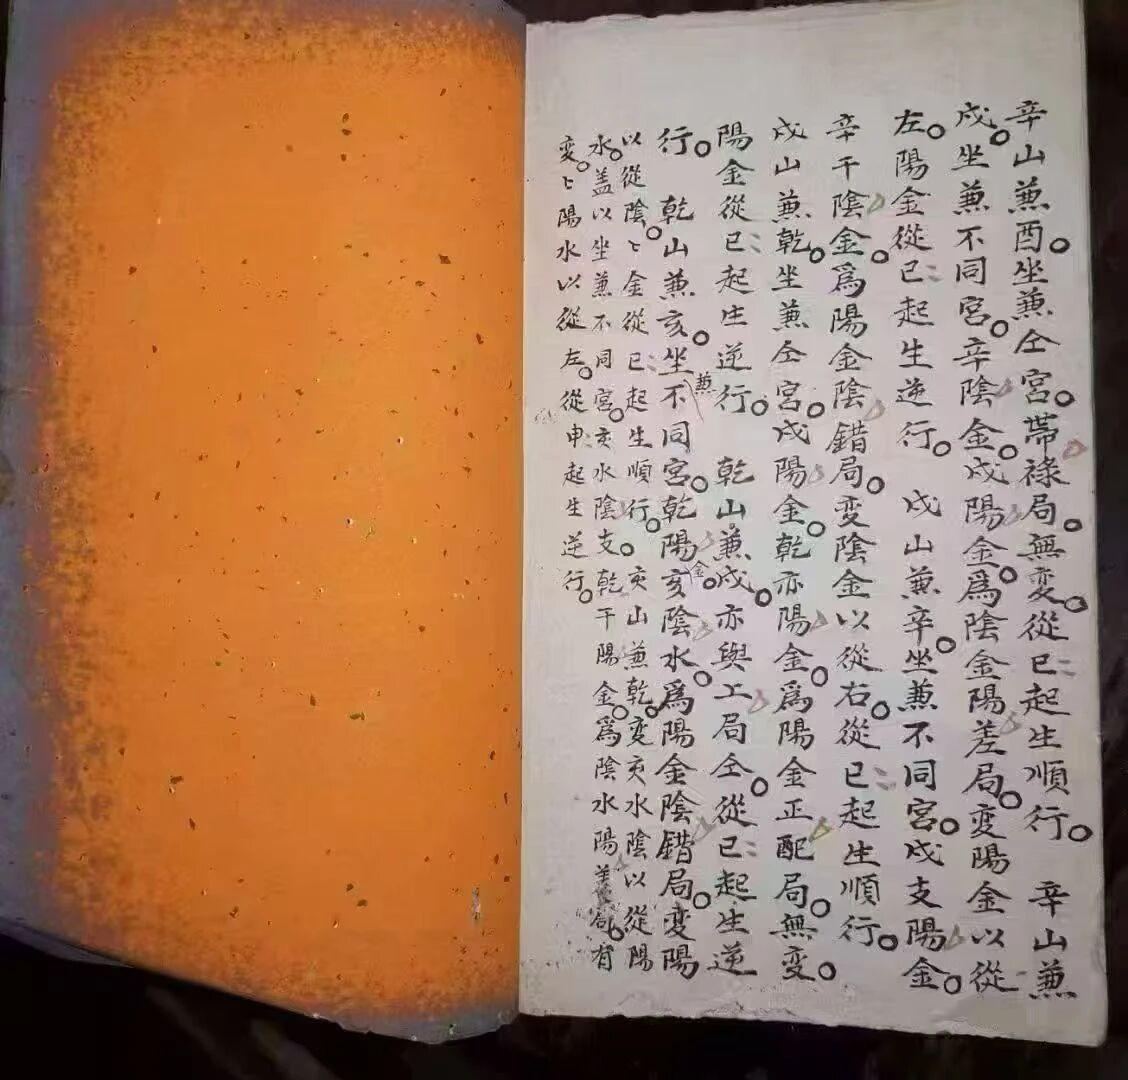 辛山蒹酉。坐蒹仝宮。帶祿局。無変從巳起生順行。　辛山蒹
戌。坐蒹不同宮。辛陰金。戌陽金。爲陰金陽差局。変陽金以從
左。陽金從巳起生逆行。　戌山蒹辛。坐蒹不同宮。戌支陽金。
辛干陰金。爲陽金陰錯局。変陰金以從右。從巳起生順行。
戌山蒹乾。坐蒹仝宮。戌陽金。乾亦陽金。爲陽金正配局。無変。
陽金從巳起生逆行。　乾山蒹戌。亦與工局仝。從巳起生逆
行。　乾山蒹亥。坐蒹不同宮。乾陽金。亥陰水。爲陽金陰錯局。変陽
以從陰。〻金從巳起生順行。亥山蒹乾。変亥水陰以從陽
水。盖以坐蒹不同宮。亥水陰支。乾干陽金。爲陰水陽差局。有
変。〻陽水以從左。從申起生逆行。